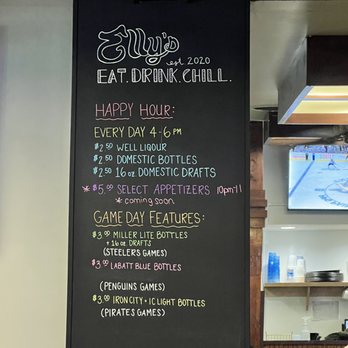 Elly's
est 2020
EAT. DRINK. CHILL.
HAPPY HOUR:
EVERY DAY 4-6 PM
$2.50 WELL LIQOUR
$2.50 DOMESTIC BOTTLES
$2.50 16oz DOMESTIC DRAFTS
* $5.00 SELECT APPETIZERS 10pm'll
* coming soon
GAME DAY FEATURES:
$3.00 MILLER LITE BOTTLES
+ 16oz DRAFTS
(STEELERS GAMES)
$3.00 LABATT BLUE BOTTLES
(PENGUINS GAMES)
$3.00 IRON CITY + IC LIGHT BOTTLES
(PIRATES GAMES)